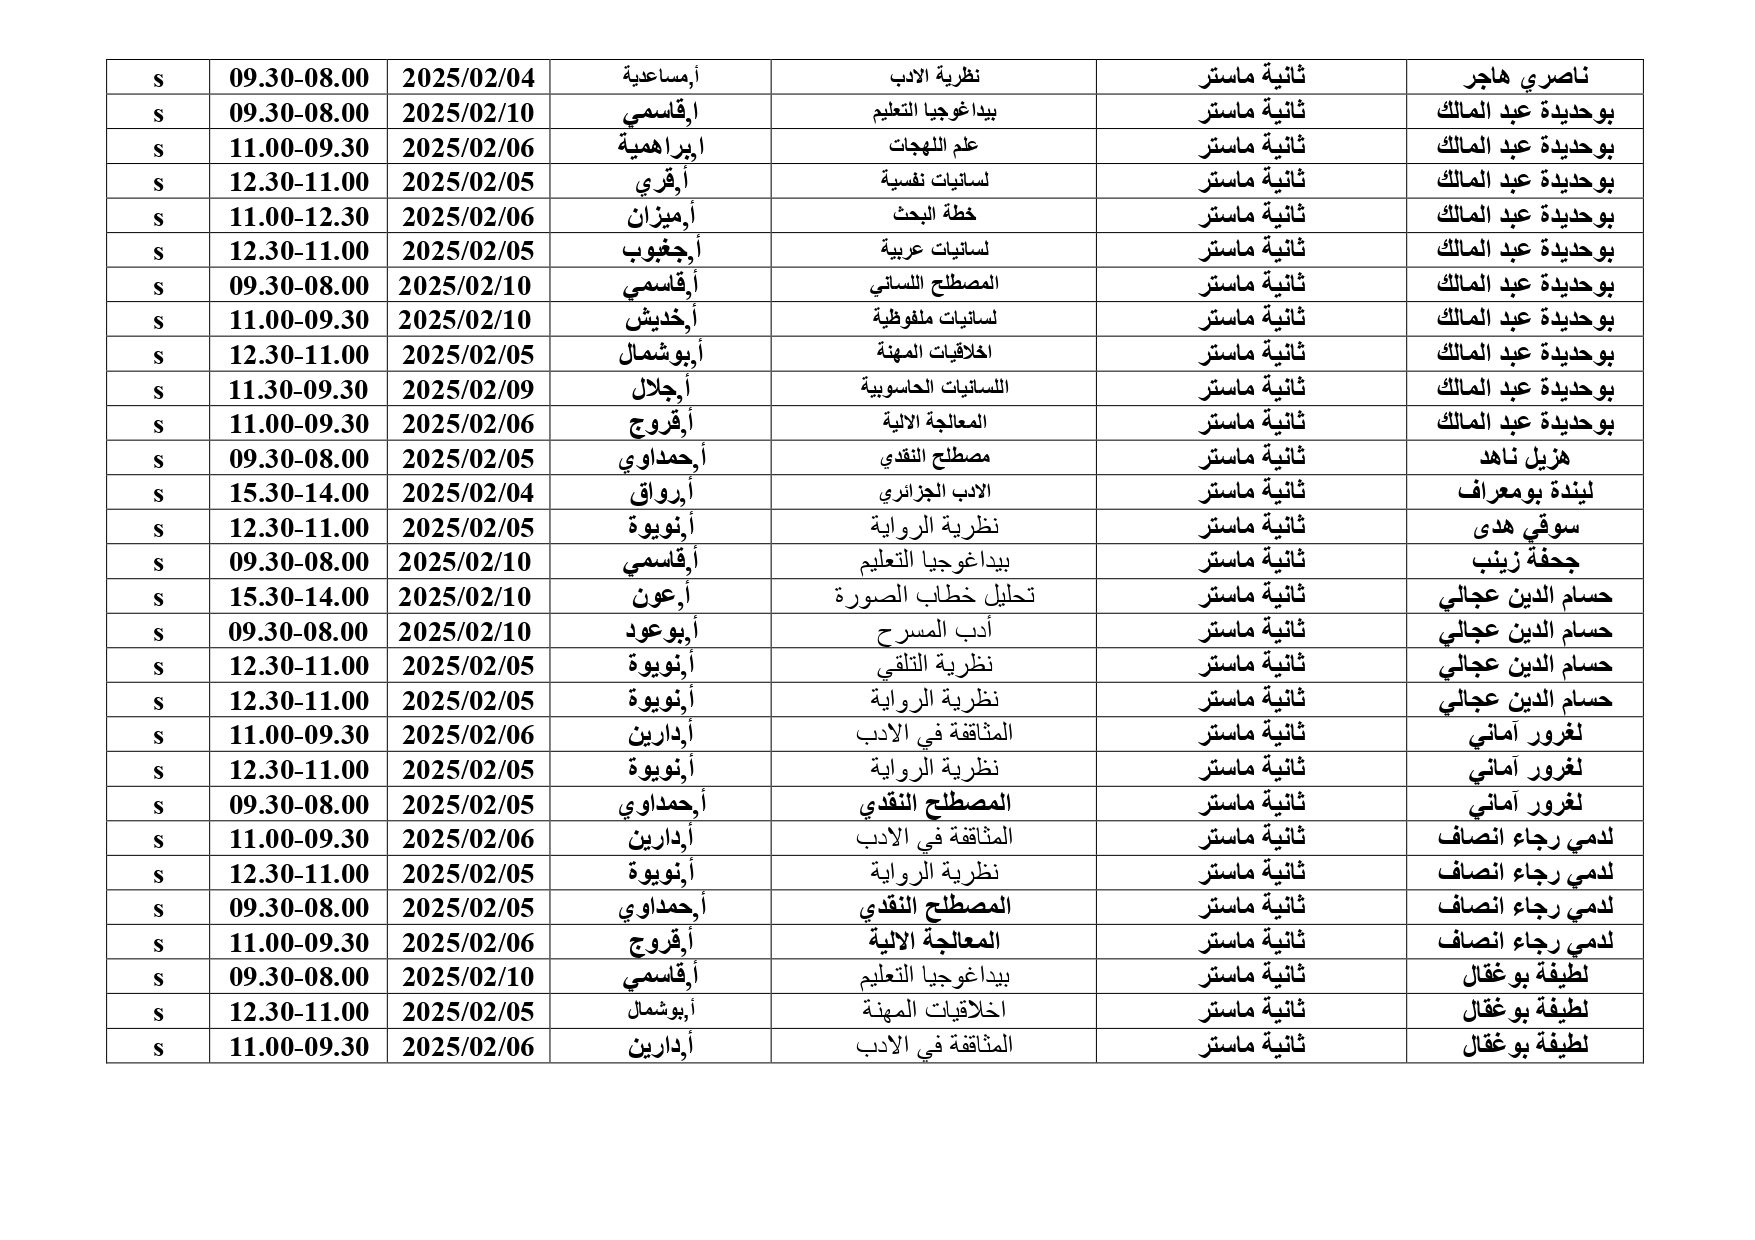 ناصري هاجر ثانية ماستر نظرية الادب أ,مساعدية 2025/02/04 09.30-08.00 s
بوحديدة عبد المالك ثانية ماستر بيداغوجيا التعليم ا,قاسمي 2025/02/10 09.30-08.00 s
بوحديدة عبد المالك ثانية ماستر علم اللهجات ا,براهمية 2025/02/06 11.00-09.30 s
بوحديدة عبد المالك ثانية ماستر لسانيات نفسية أ,قري 2025/02/05 12.30-11.00 s
بوحديدة عبد المالك ثانية ماستر خطة البحث أ,ميزان 2025/02/06 11.00-12.30 s
بوحديدة عبد المالك ثانية ماستر لسانيات عربية أ,جغبوب 2025/02/05 12.30-11.00 s
بوحديدة عبد المالك ثانية ماستر المصطلح اللساني أ,قاسمي 2025/02/10 09.30-08.00 s
بوحديدة عبد المالك ثانية ماستر لسانيات ملفوظية أ,خديش 2025/02/10 11.00-09.30 s
بوحديدة عبد المالك ثانية ماستر اخلاقيات المهنة أ,بوشمال 2025/02/05 12.30-11.00 s
بوحديدة عبد المالك ثانية ماستر اللسانيات الحاسوبية أ,جلال 2025/02/09 11.30-09.30 s
بوحديدة عبد المالك ثانية ماستر المعالجة الالية أ,قروج 2025/02/06 11.00-09.30 s
هزيل ناهد ثانية ماستر مصطلح النقدي أ,حمداوي 2025/02/05 09.30-08.00 s
ليندة بومعراف ثانية ماستر الادب الجزائري أ,رواق 2025/02/04 15.30-14.00 s
سوقي هدى ثانية ماستر نظرية الرواية أ,نويوة 2025/02/05 12.30-11.00 s
جحفة زينب ثانية ماستر بيداغوجيا التعليم أ,قاسمي 2025/02/10 09.30-08.00 s
حسام الدين عجالي ثانية ماستر تحليل خطاب الصورة أ,عون 2025/02/10 15.30-14.00 s
حسام الدين عجالي ثانية ماستر أدب المسرح أ,بوعود 2025/02/10 09.30-08.00 s
حسام الدين عجالي ثانية ماستر نظرية التلقي أ,نويوة 2025/02/05 12.30-11.00 s
حسام الدين عجالي ثانية ماستر نظرية الرواية أ,نويوة 2025/02/05 12.30-11.00 s
لغرور آماني ثانية ماستر المثاقفة في الادب أ,دارين 2025/02/06 11.00-09.30 s
لغرور آماني ثانية ماستر نظرية الرواية أ,نويوة 2025/02/05 12.30-11.00 s
لغرور آماني ثانية ماستر المصطلح النقدي أ,حمداوي 2025/02/05 09.30-08.00 s
لدمي رجاء انصاف ثانية ماستر المثاقفة في الادب أ,دارين 2025/02/06 11.00-09.30 s
لدمي رجاء انصاف ثانية ماستر نظرية الرواية أ,نويوة 2025/02/05 12.30-11.00 s
لدمي رجاء انصاف ثانية ماستر المصطلح النقدي أ,حمداوي 2025/02/05 09.30-08.00 s
لدمي رجاء انصاف ثانية ماستر المعالجة الالية أ,قروج 2025/02/06 11.00-09.30 s
لطيفة بوغقال ثانية ماستر بيداغوجيا التعليم أ,قاسمي 2025/02/10 09.30-08.00 s
لطيفة بوغقال ثانية ماستر اخلاقيات المهنة أ,بوشمال 2025/02/05 12.30-11.00 s
لطيفة بوغقال ثانية ماستر المثاقفة في الادب أ,دارين 2025/02/06 11.00-09.30 s